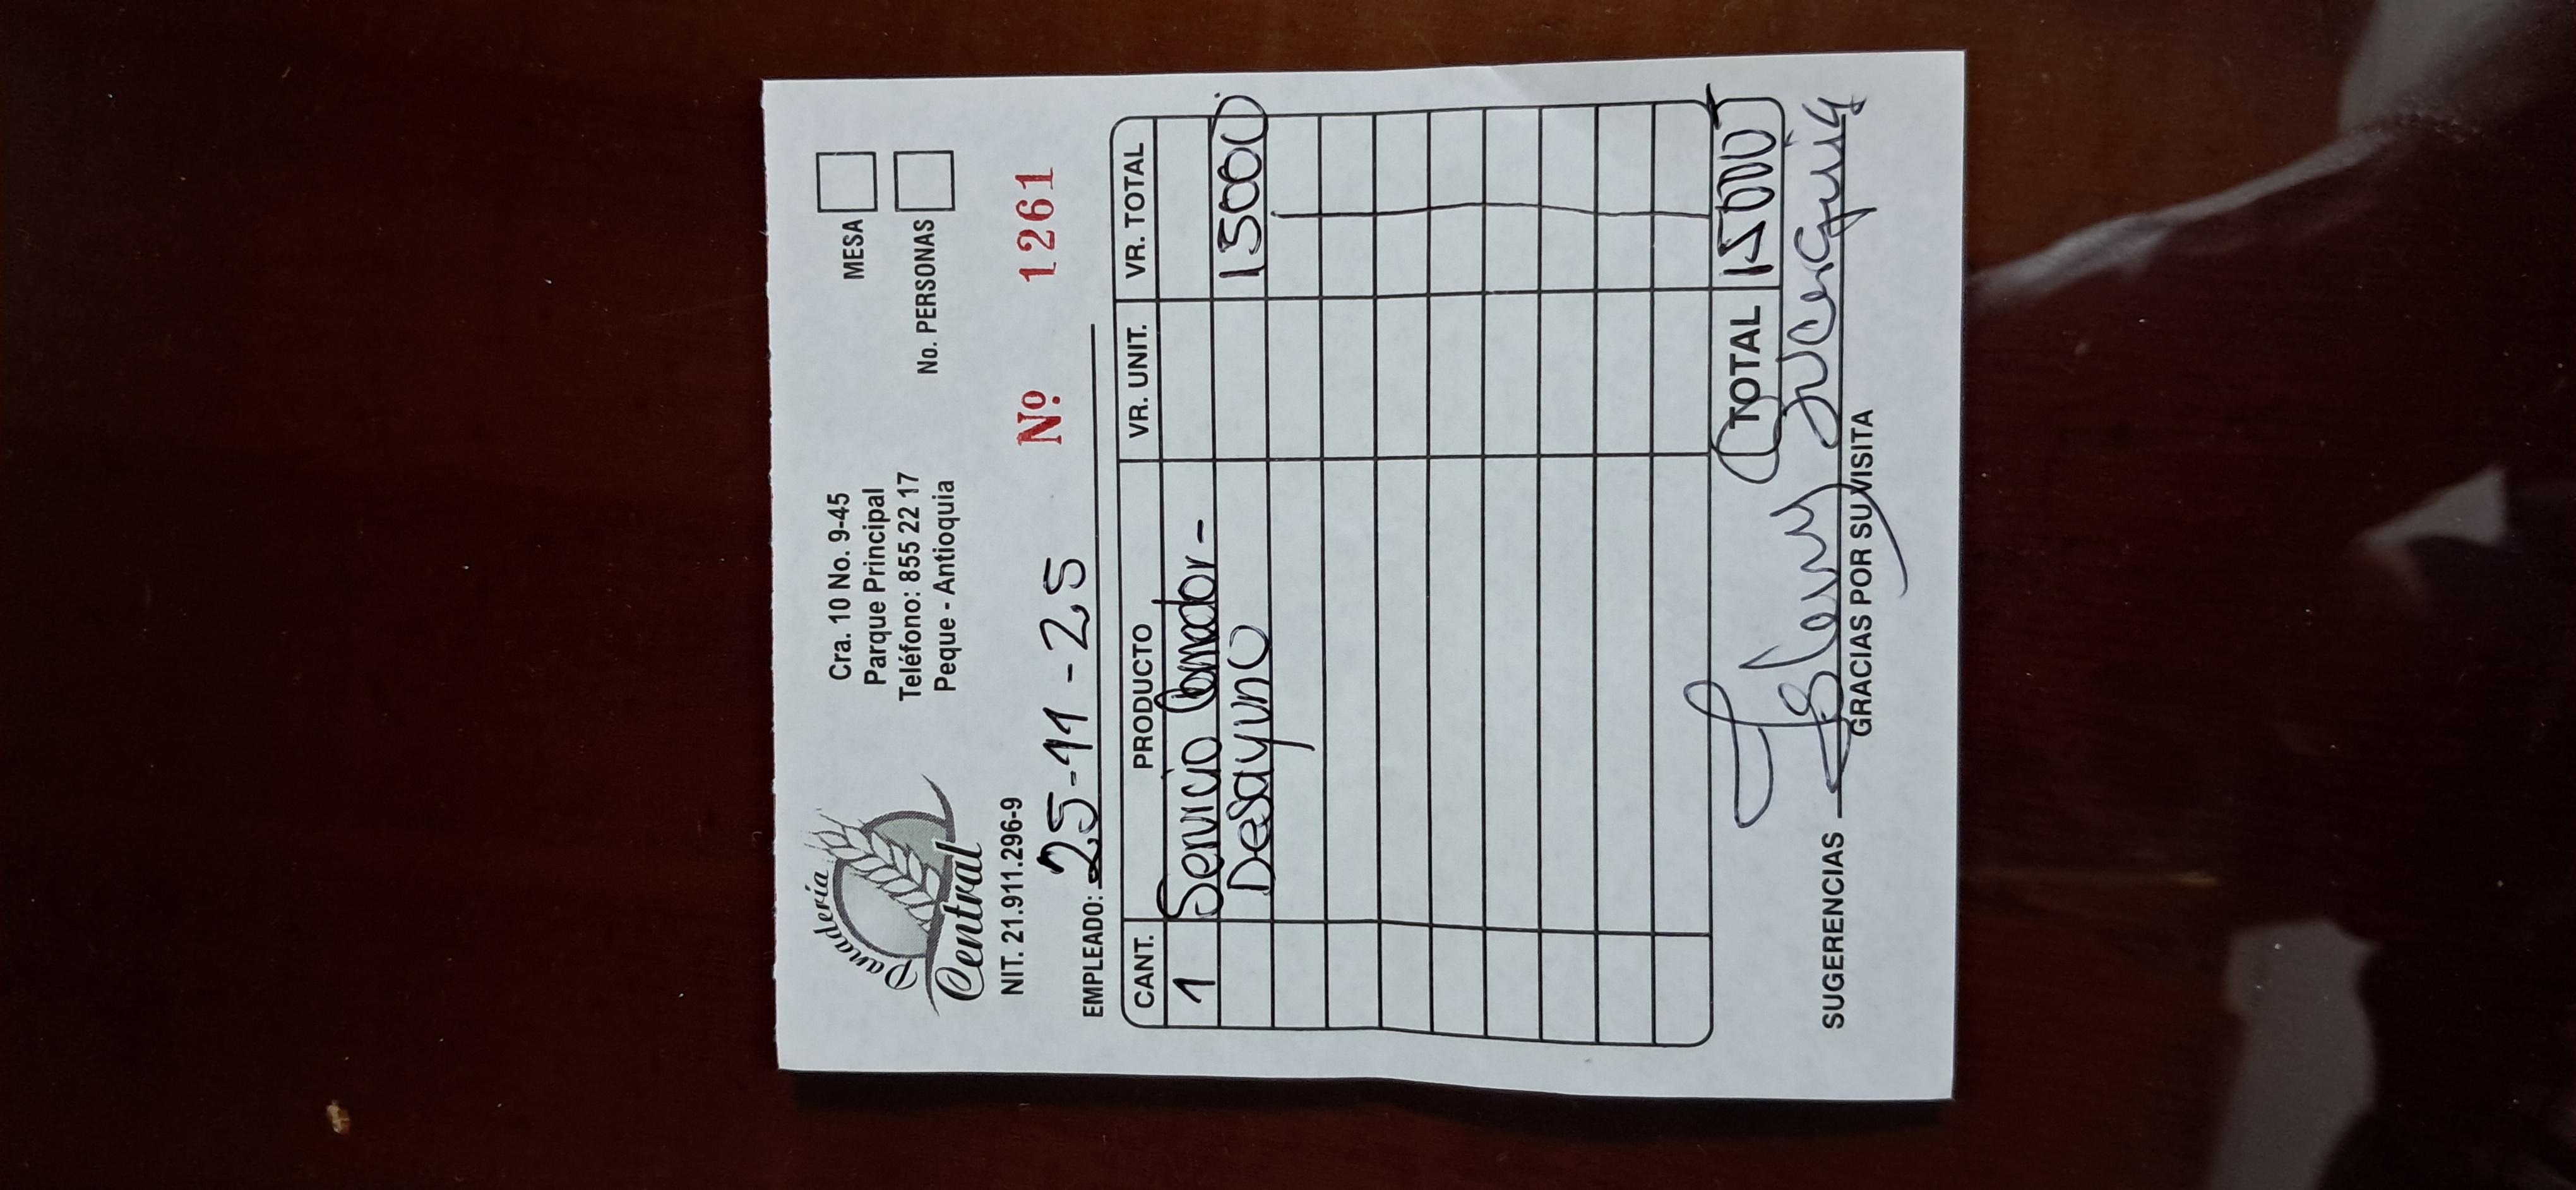 Panadería
Central
Cra. 10 No. 9-45
Parque Principal
Teléfono: 855 22 17
Peque - Antioquia
MESA
No. PERSONAS
NIT. 21.911.296-9
Nº 1261
EMPLEADO: 25-11-25
CANT. PRODUCTO VR. UNIT. VR. TOTAL
1 Servicio Comedor -
Desayuno 15000
TOTAL 15000
SUGERENCIAS
GRACIAS POR SU VISITA